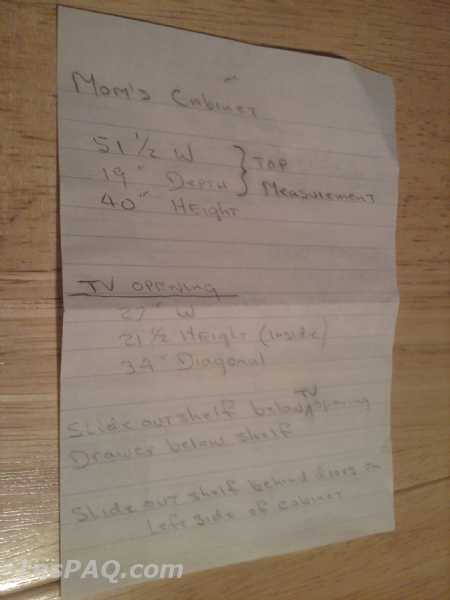 Mom's Cabinet
51 1/2 W
19" Depth
40" Height
} Top
Measurement
TV Opening
27" W
21 1/2 Height (Inside)
34" Diagonal
Slide out shelf below TV opening
Drawer below shelf
Slide out shelf behind doors on
Left side of cabinet
PAQ.com